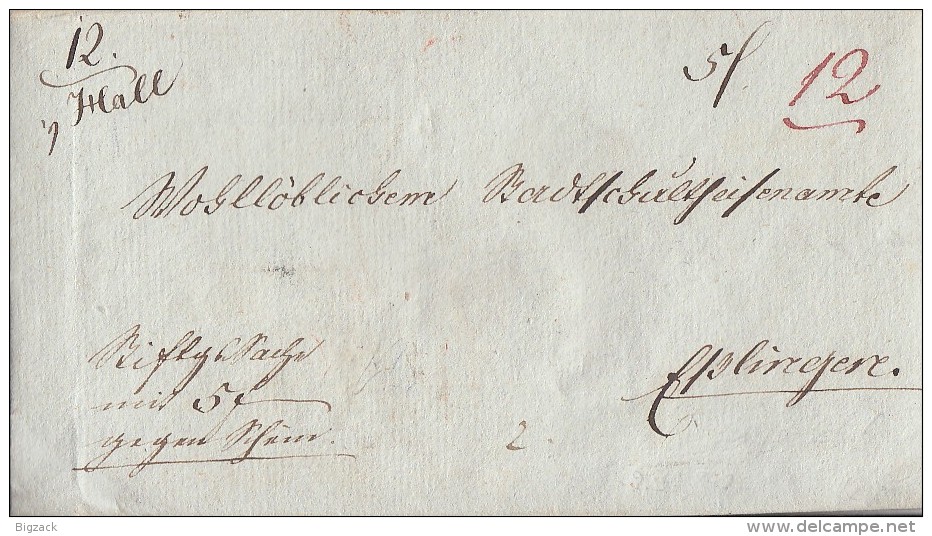 12.
v Hall
5f 12
Wohllöblichem Stadtschultheisenamte
Stiftgs Sache
mit 5 f
gegen Schein.
Esslingen.
2.
Bigzack
delcampe.net